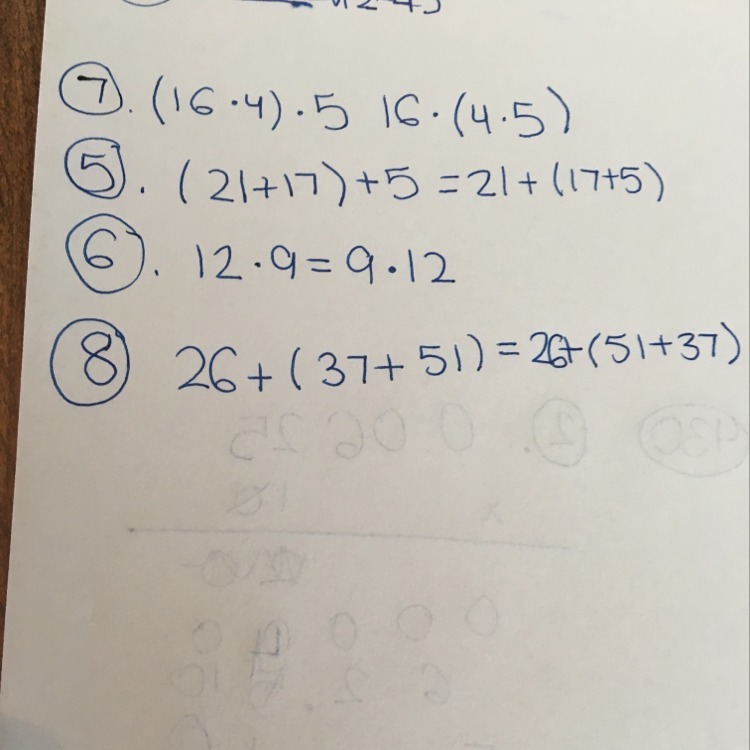 7. (16·4)·5 16·(4·5)
5. (21+17)+5 =21+(17+5)
6. 12·9=9·12
8 26+(37+51)=26+(51+37)